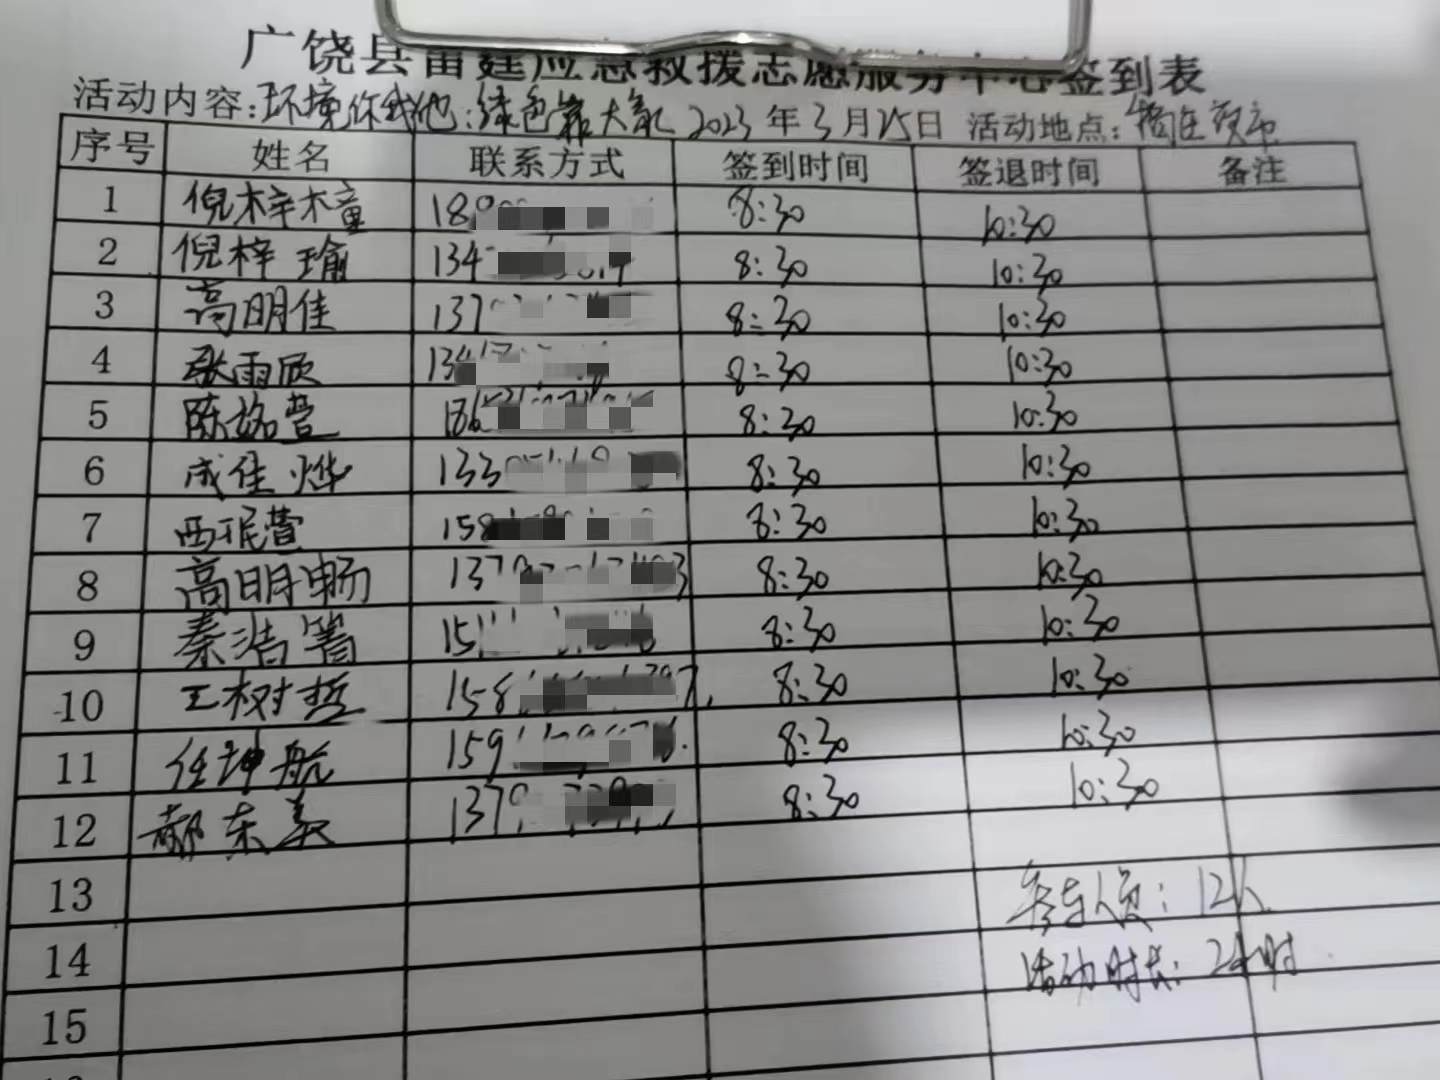 广饶县雷霆应急救援志愿服务中心签到表
活动内容：环境你我他：绿色靠大家 2023年3月25日 活动地点：
序号 姓名 联系方式 签到时间 签退时间 备注
1 倪梓橦 18 8:30 10:30
2 倪梓瑜 134 8:30 10:30
3 高明佳 137 8:30 10:30
4 张雨欣 134 8:30 10:30
5 陈姳萱 186 8:30 10:30
6 成佳烨 133 8:30 10:30
7 西珉萱 158 8:30 10:30
8 高明畅 137 8:30 10:30
9 秦浩 151 8:30 10:30
10 王树哲 158 8:30 10:30
11 任坤航 159 8:30 10:30
12 郝东美 137 8:30 10:30
13 参与人员：12人
14 活动时长：2小时
15